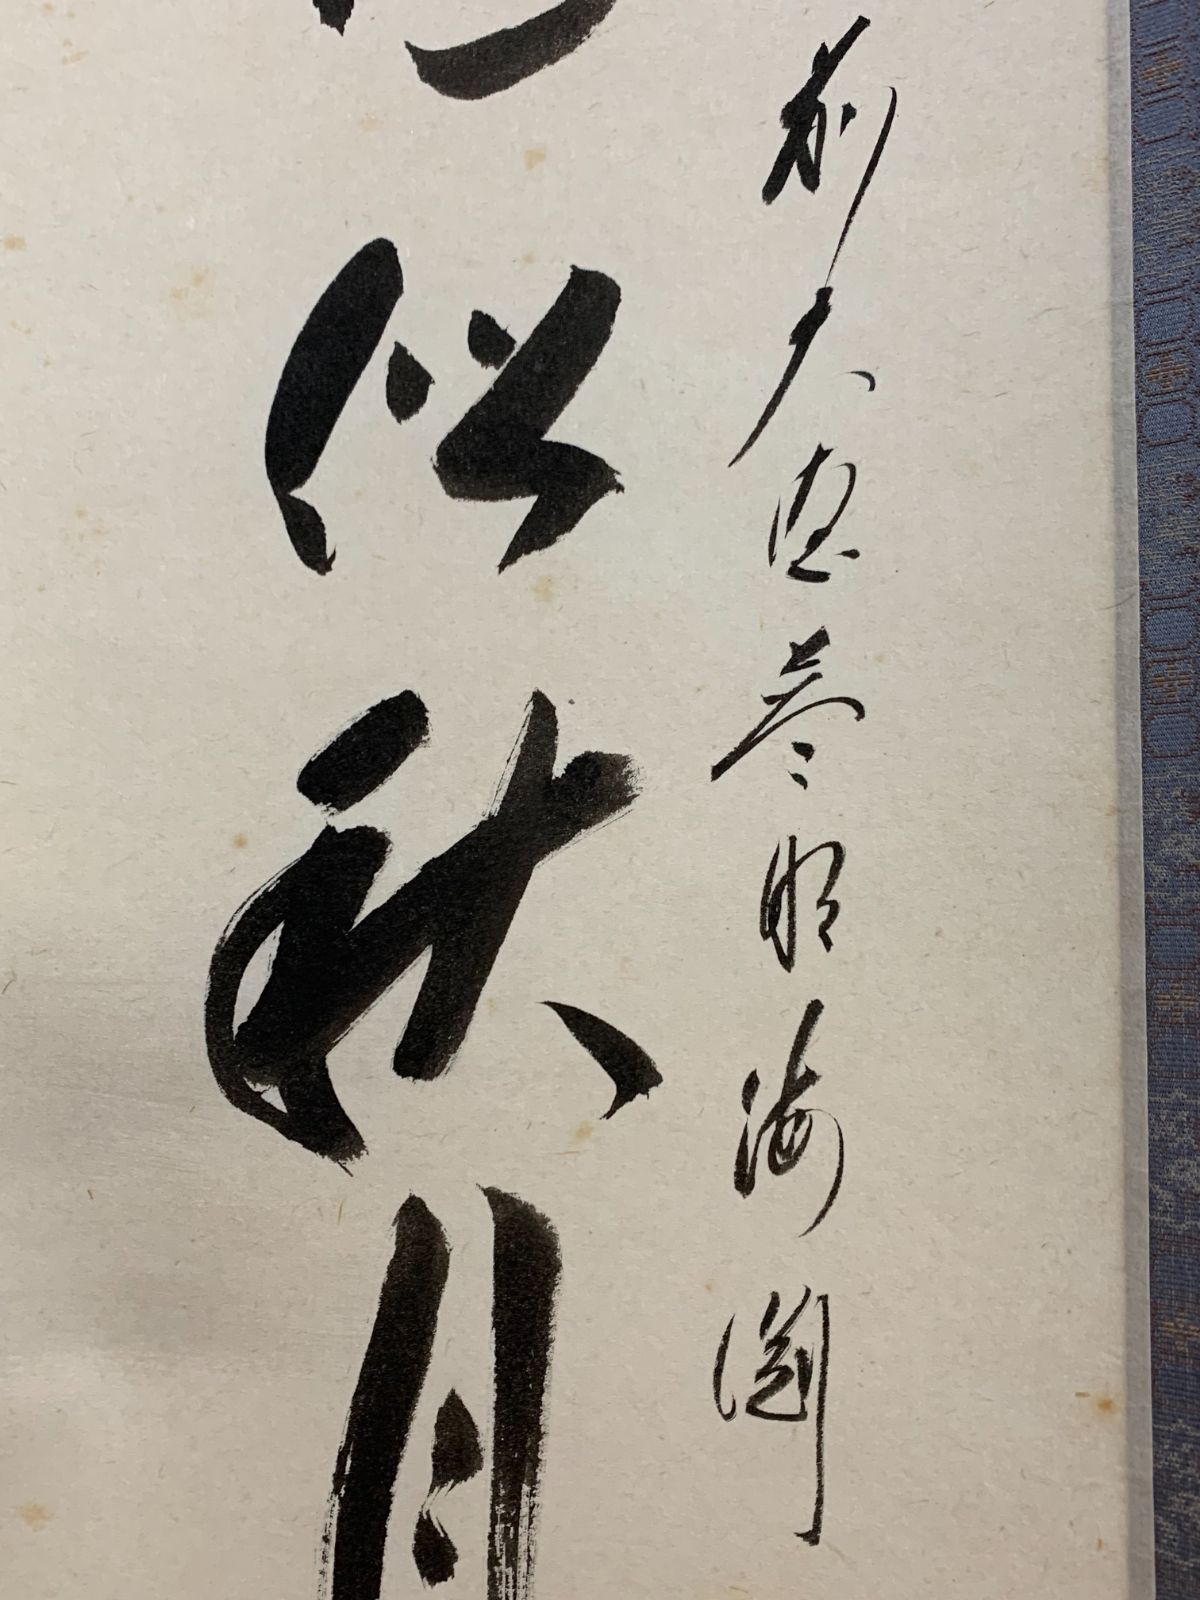 前大徳明海渕
心似秋月